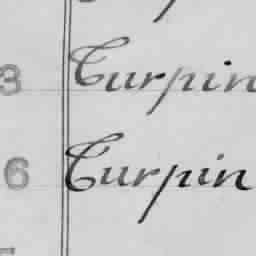 3 Turpin
6 Turpin